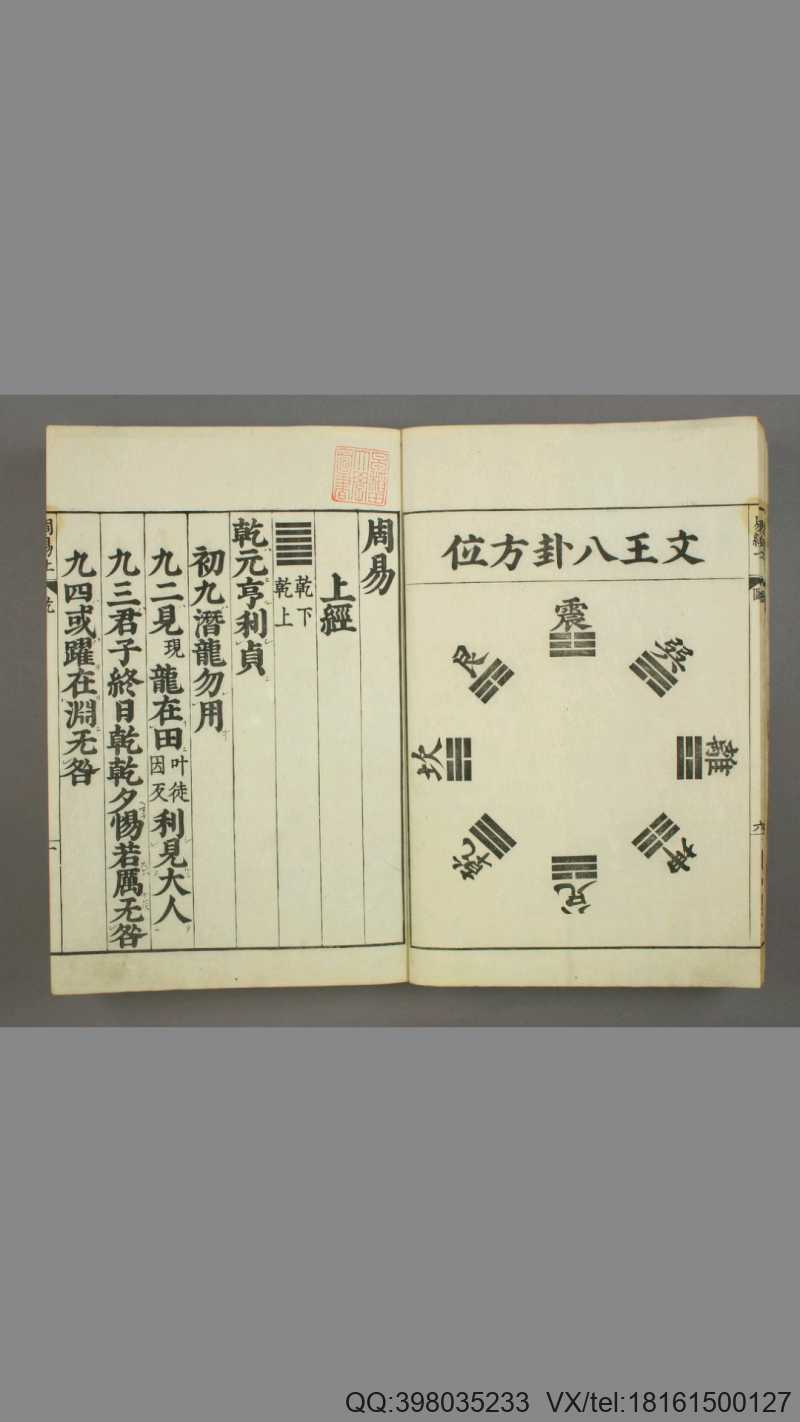 文王八卦方位
震
巽
離
坤
兌
乾
坎
艮
六
周易
上經
乾下
乾上
乾元亨利貞
初九潛龍勿用
九二見現龍在田叶徒因反利見大人
九三君子終日乾乾夕惕若厲无咎
九四或躍在淵无咎
周易上
乾
一
QQ:398035233 VX/tel:18161500127